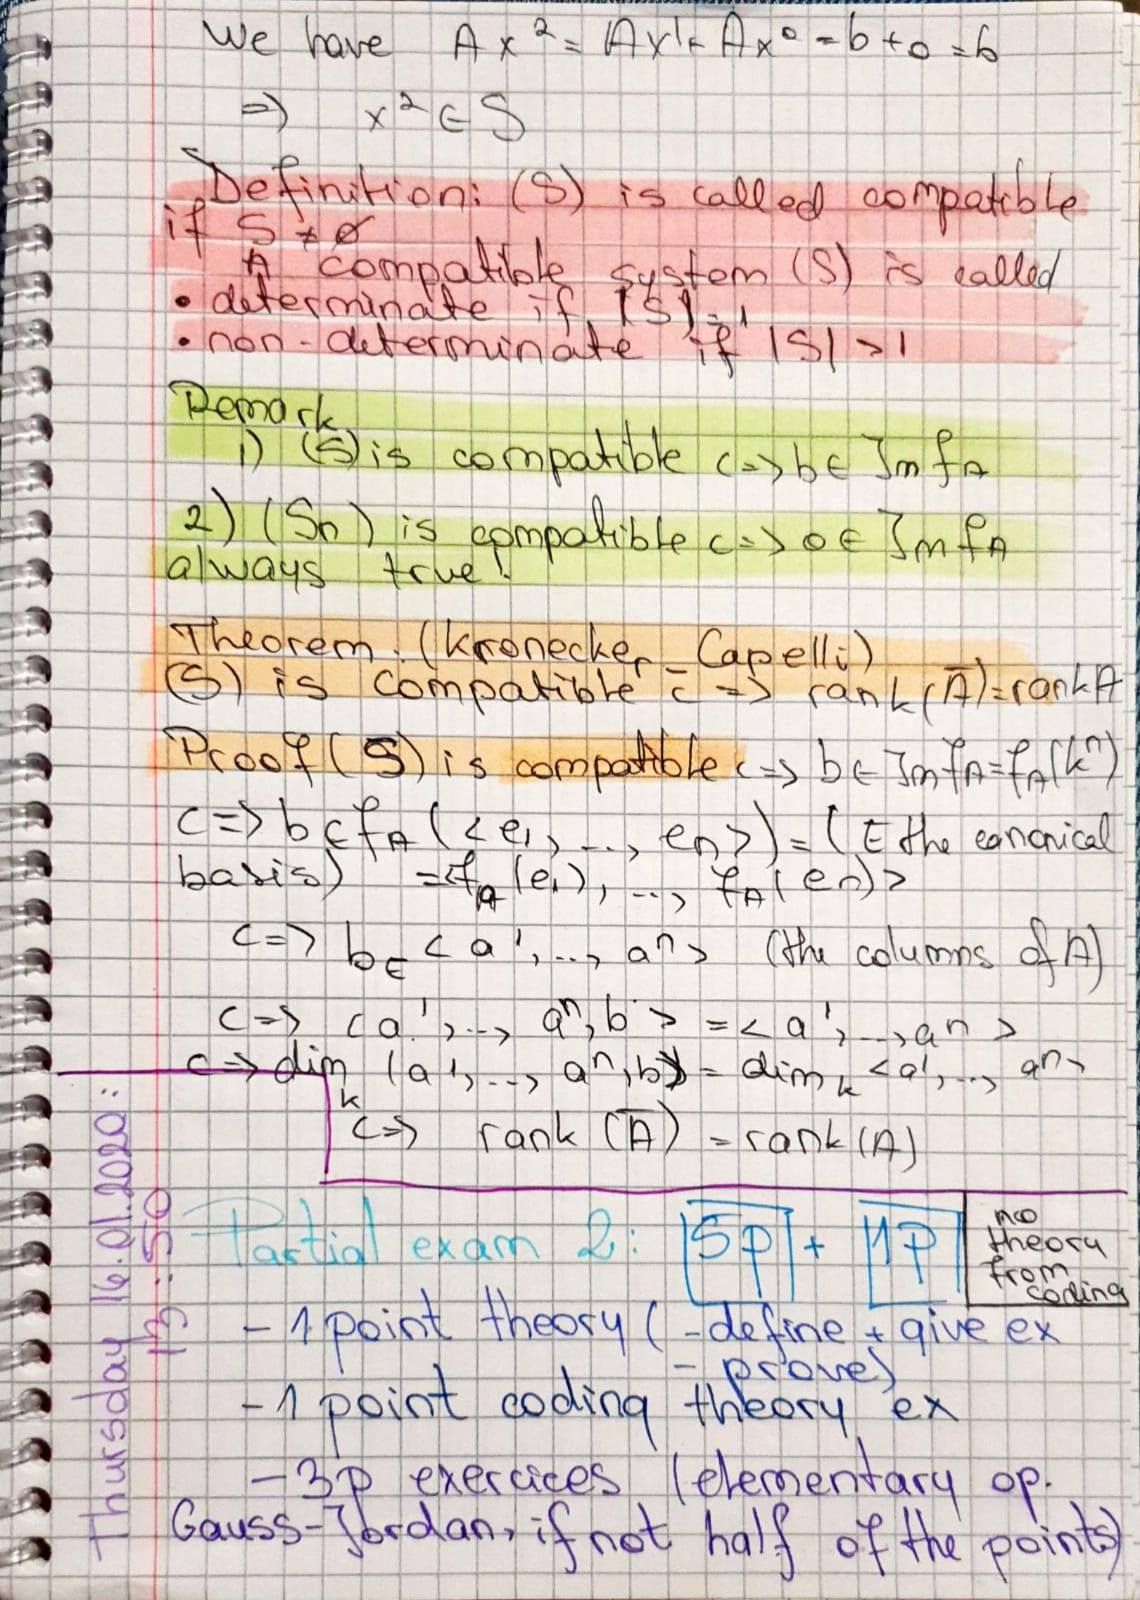 We have Ax² = Ax¹ + Ax⁰ = b + 0 = b
=> x² ∈ S
Definition: (S) is called compatible
if S ≠ ∅
A compatible system (S) is called
• determinate if |S| = 1
• non-determinate if |S| > 1
Remark
1) (S) is compatible <=> b ∈ Im f_A
2) (S₀) is compatible <=> 0 ∈ Im f_A
always true!
Theorem. (Kronecker - Capelli)
(S) is compatible <=> rank(Ā) = rank A
Proof (S) is compatible <=> b ∈ Im f_A = f_A(kⁿ)
<=> b ∈ f_A (<e₁, ..., en>) = (E the canonical
basis) = <f_A(e₁), ..., f_A(en)>
<=> b ∈ <a¹, ..., aⁿ> (the columns of A)
<=> <a¹, ..., aⁿ, b> = <a¹, ..., aⁿ>
<=> dim_k <a¹, ..., aⁿ, b> = dim_k <a¹, ..., aⁿ>
<=> rank (Ā) = rank (A)
Thursday 16.01.2020:
13:50
Partial exam 2: 5p + 1p
no
theory
from
coding
- 1 point theory ( - define + give ex
- prove)
- 1 point coding theory ex
- 3p exercices (elementary op.
Gauss-Jordan, if not half of the points)